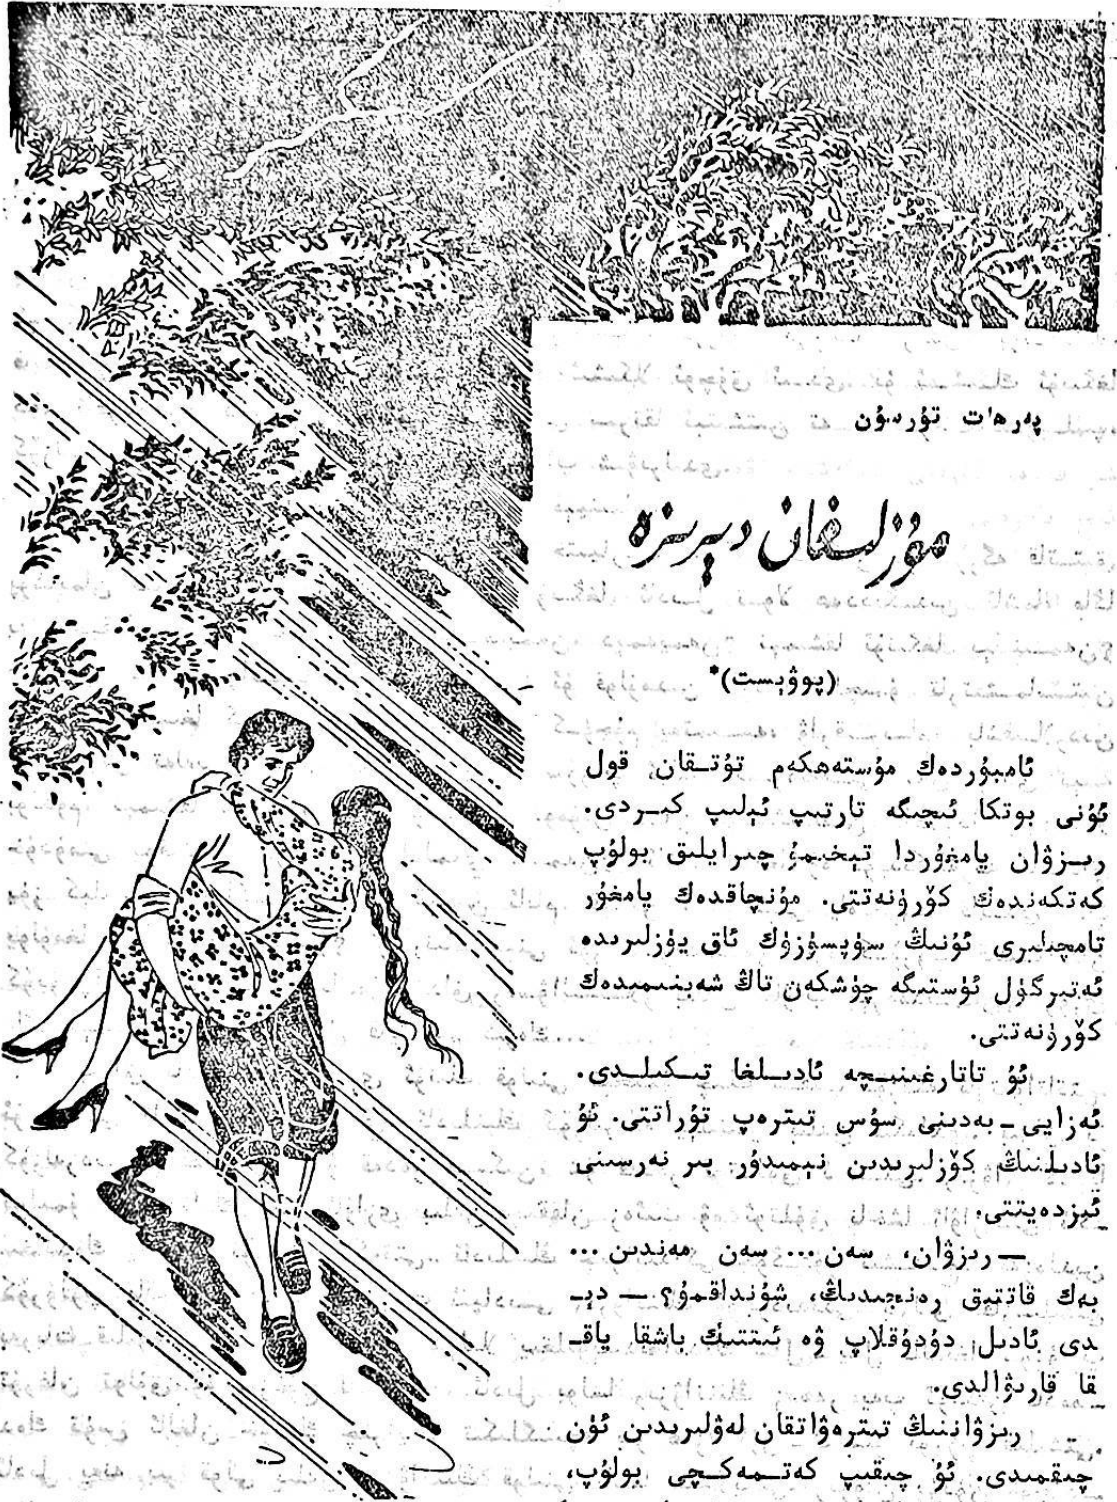 پەرھات تۇرسۇن
مۇزلىغان دېرىزە
(پوۋېست)*
ئامبۇردەك مۇستەھكەم تۇتـقان قول
ئۇنى بوتكا ئىچىگە تارتىپ ئېلىپ كىـردى.
رىـزۋان يامغۇردا تېخىمۇ چىرايلىق بولۇپ
كەتكەندەك كۆرۈنەتتى. مۇنچاقدەك يامغۇر
تامچىلىرى ئۇنىڭ سۈپسۈزۈك ئاق يۈزلىرىدە
ئەتىرگۈل ئۈستىگە چۈشكەن تاڭ شەبنىمىدەك
كۆرۈنەتتى.
ئۇ تاتارغىنىـچە ئادىـلغا تىـكىلـدى.
ئەزايى ـ بەدىنى سۇس تىترەپ تۇراتتى. ئۇ
ئادىلنىڭ كۆزلىرىدىن نېمىدۇر بىر نەرسىنى
ئىزدەيتتى.
— رىزۋان، سەن ... سەن مەندىن ...
بەك قاتتىق رەنجىدىڭ، شۇنداقمۇ؟ — دېـ
ـدى ئادىل دۇدۇقلاپ ۋە ئىتتىك باشقا ياقـ
ـقا قارىۋالدى.
رىزۋاننىڭ تىترەۋاتقان لەۋلىرىدىن ئۈن
چىقمىدى. ئۇ چىقىپ كەتـمەكـچى بولۇپ،